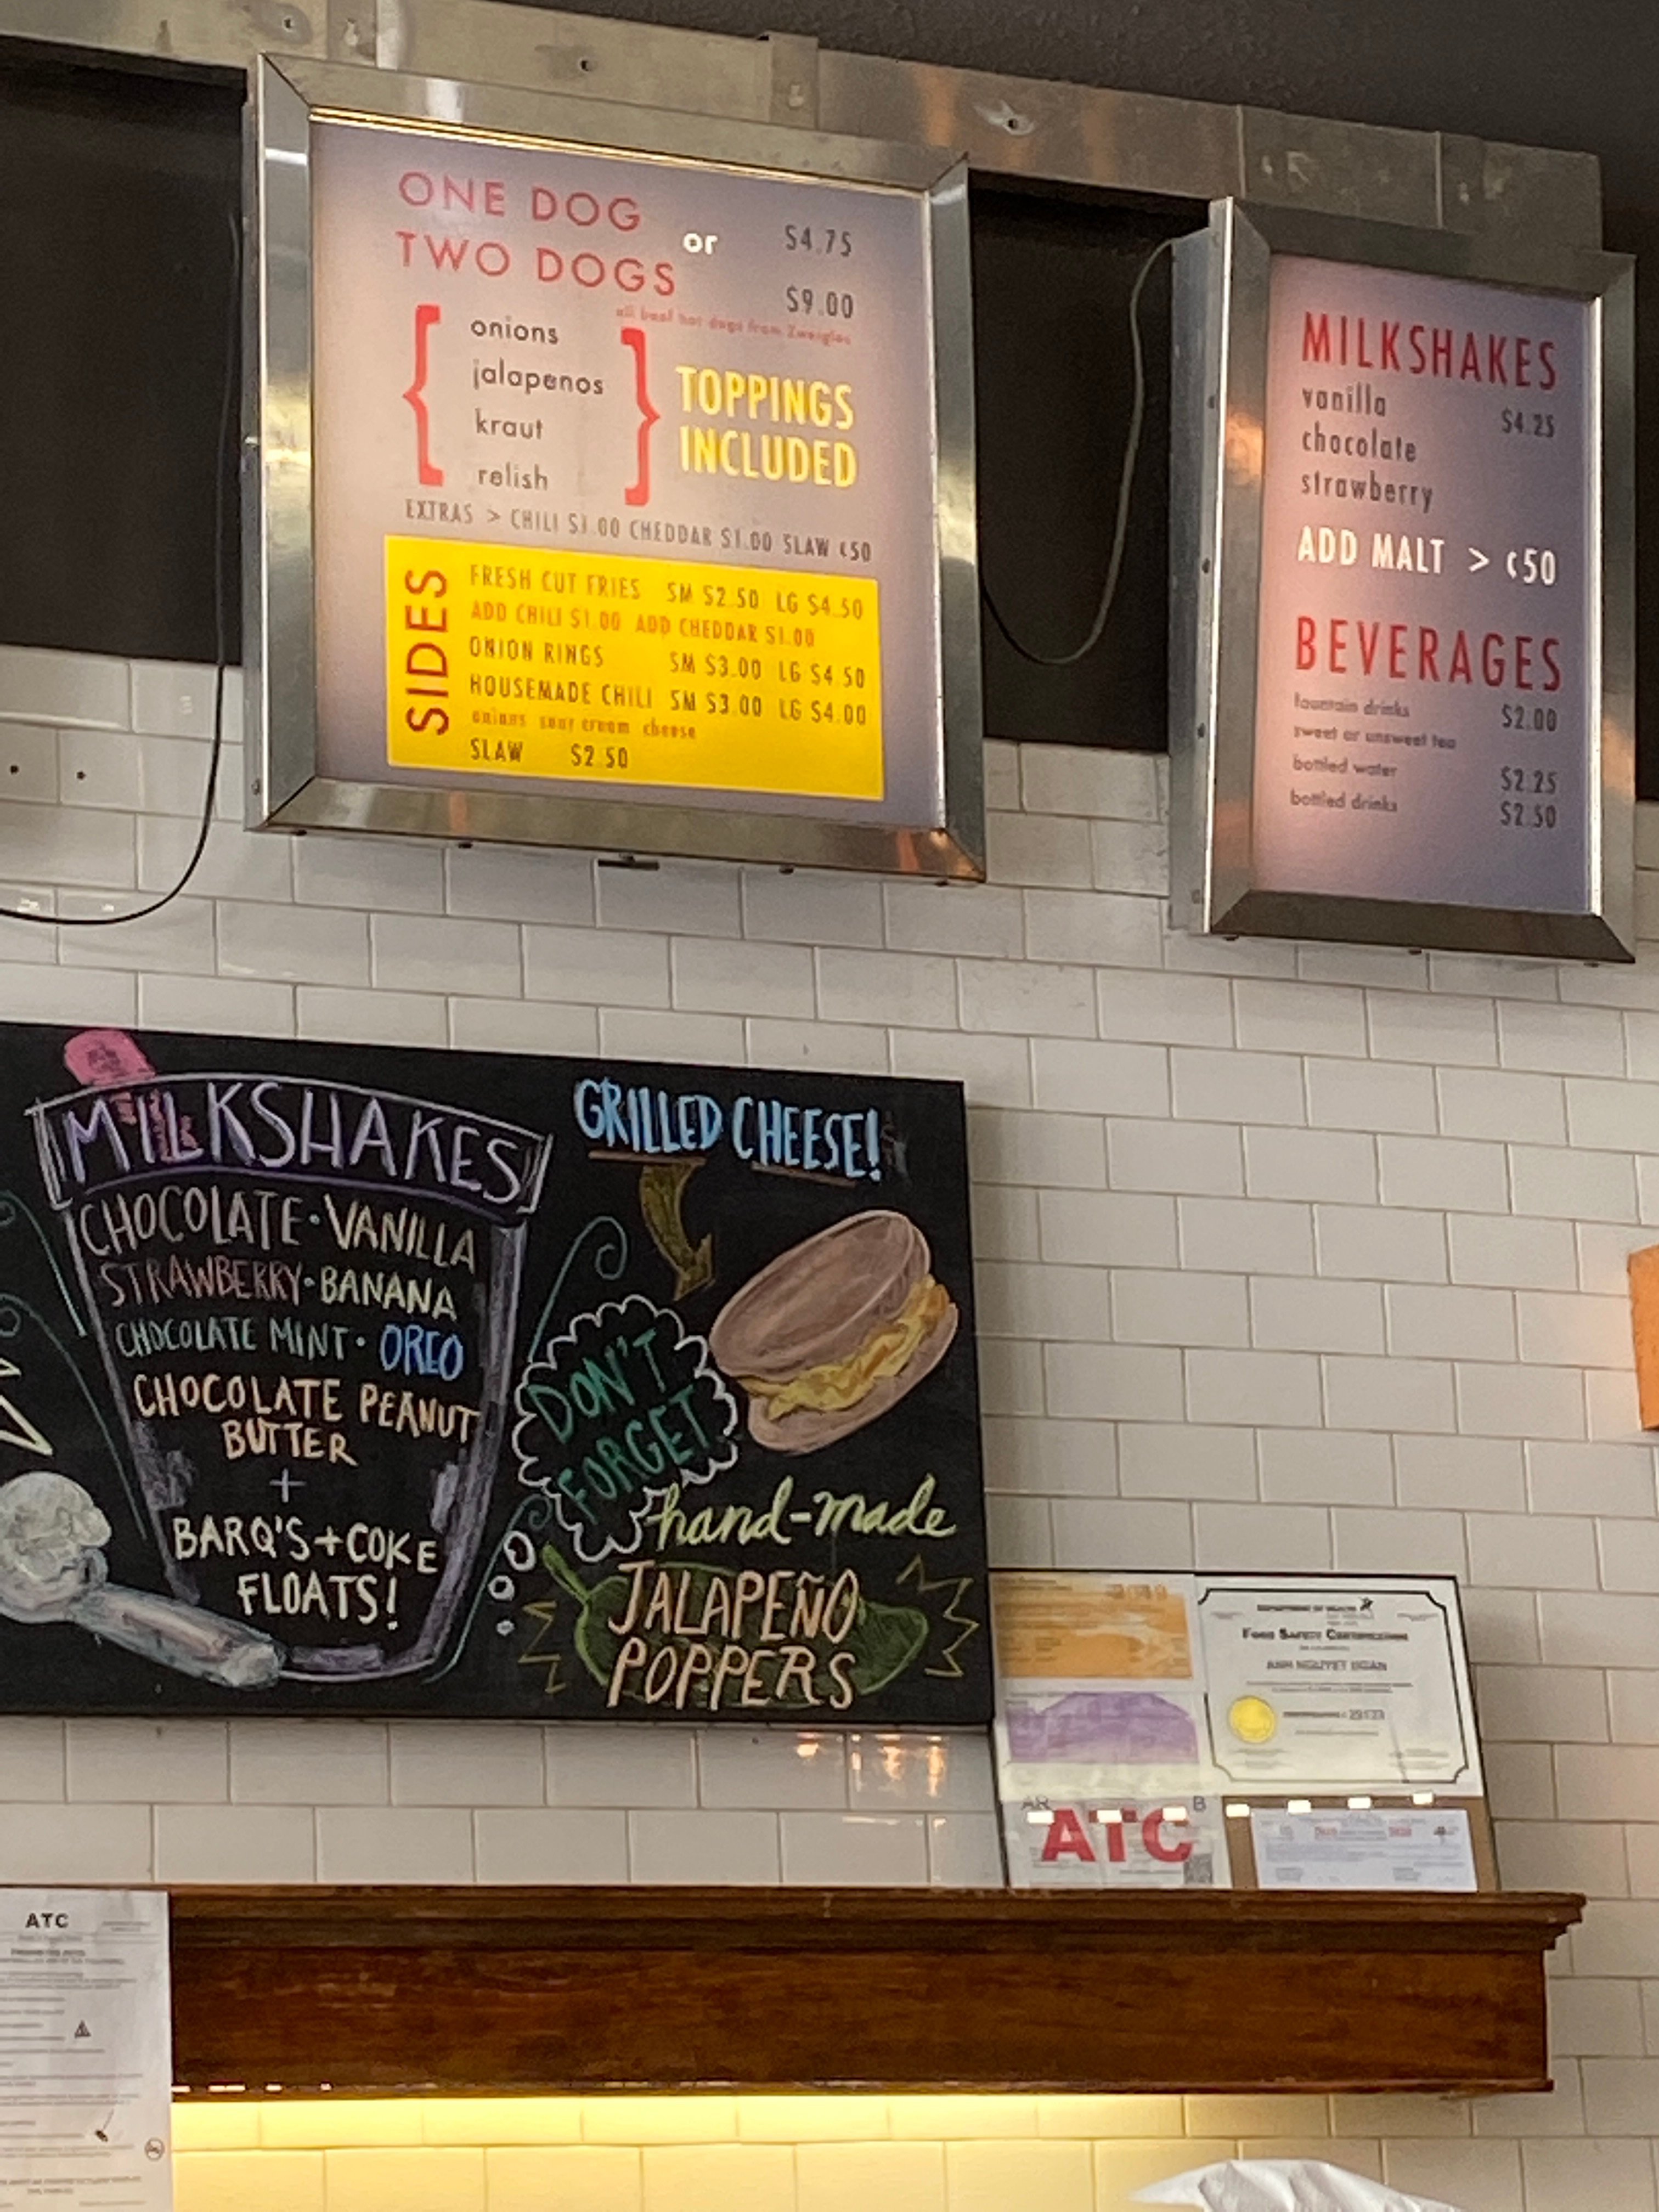 ONE DOG
or
$4.75
TWO DOGS
$9.00
all beef hot dogs from Zweigles
onions
jalapenos
kraut
relish
TOPPINGS
INCLUDED
EXTRAS > CHILI $1.00 CHEDDAR $1.00 SLAW ¢50
SIDES
FRESH CUT FRIES SM $2.50 LG $4.50
ADD CHILI $1.00 ADD CHEDDAR $1.00
ONION RINGS SM $3.00 LG $4.50
HOUSEMADE CHILI SM $3.00 LG $4.00
onions sour cream cheese
SLAW $2.50
MILKSHAKES
vanilla $4.25
chocolate
strawberry
ADD MALT > ¢50
BEVERAGES
fountain drinks $2.00
sweet or unsweet tea
bottled water $2.25
bottled drinks $2.50
MILKSHAKES
CHOCOLATE · VANILLA
STRAWBERRY · BANANA
CHOCOLATE MINT · OREO
CHOCOLATE PEANUT
BUTTER
+
BARQ'S + COKE
FLOATS!
GRILLED CHEESE!
DON'T
FORGET
hand-made
JALAPEÑO
POPPERS
DEPARTMENT OF HEALTH
FOOD SAFETY CERTIFICATION
AR
B
ATC
ATC